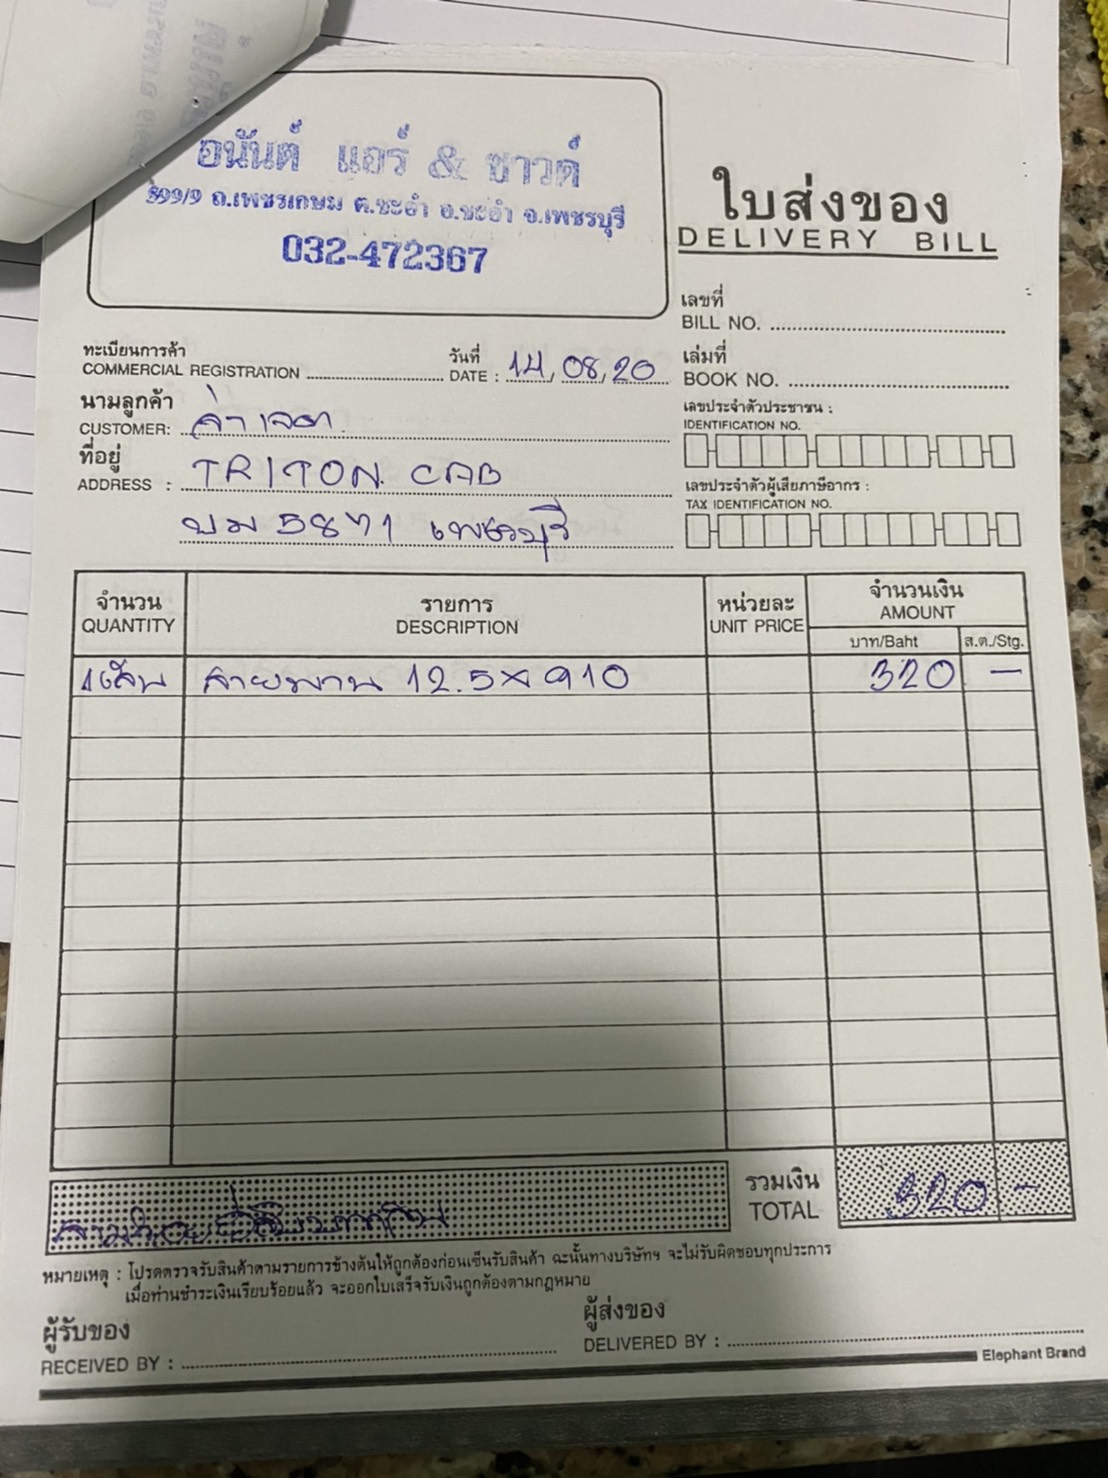 อนันต์ แอร์ & ซาวด์
899/9 ถ.เพชรเกษม ต.ชะอำ อ.ชะอำ จ.เพชรบุรี
032-472367
ใบส่งของ
DELIVERY BILL
เลขที่
BILL NO.
ทะเบียนการค้า
COMMERCIAL REGISTRATION
วันที่
DATE : 14, 08, 20
เล่มที่
BOOK NO.
นามลูกค้า
CUSTOMER:
เลขประจำตัวประชาชน :
IDENTIFICATION NO.
ที่อยู่
ADDRESS : TRITON CAB
เลขประจำตัวผู้เสียภาษีอากร :
TAX IDENTIFICATION NO.
บม 5871 เพชรบุรี
จำนวน รายการ หน่วยละ จำนวนเงิน
QUANTITY DESCRIPTION UNIT PRICE AMOUNT
บาท/Baht ส.ต./Stg.
1 เส้น สายพาน 12.5 x 910 320 -
รวมเงิน
TOTAL 320 -
สามร้อยยี่สิบบาทถ้วน
หมายเหตุ : โปรดตรวจรับสินค้าตามรายการข้างต้นให้ถูกต้องก่อนเซ็นรับสินค้า ฉะนั้นทางบริษัทฯ จะไม่รับผิดชอบทุกประการ
เมื่อท่านชำระเงินเรียบร้อยแล้ว จะออกใบเสร็จรับเงินถูกต้องตามกฎหมาย
ผู้รับของ
RECEIVED BY :
ผู้ส่งของ
DELIVERED BY :
Elephant Brand